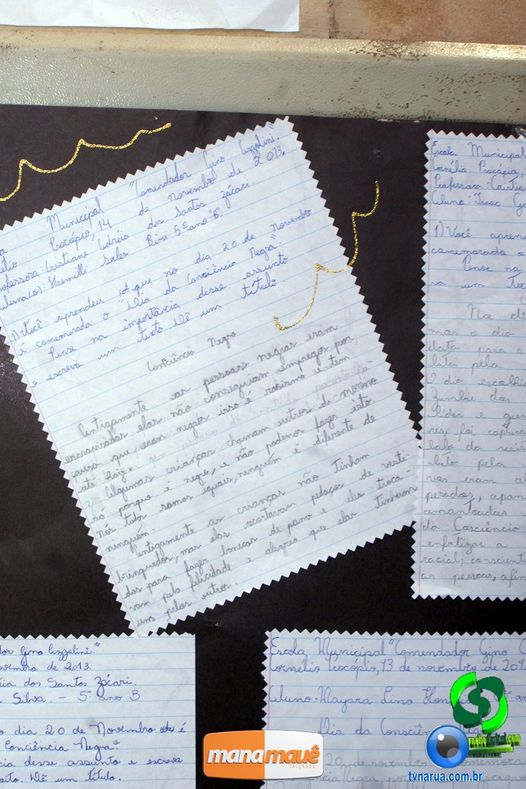 Municipal "Comendador Gino Lizzolini".
Procópio, 14 de Novembro de 2013.
Professora: Cristiane Correia dos Santos Zácari
Aluna(o): Sales Rini 5º ano "B".
1) Você aprendeu que no dia 20 de Novembro
é comemorado o "Dia da Conciência Negra"
Pense na importância desse assunto
e escreva um texto. Dê um título.
Conciência Negra
Antigamente as pessoas negras eram
escravizadas elas não conseguiam empregos por
causa que eram negras isso é racismo e tem
até hoje.
Algumas crianças chamam outras de
só porque é negro, e não podemos fazer isto
nós todos somos iguais, ninguém é diferente de
ninguém.
Antigamente as crianças não tinham
brinquedos, mas elas recortavam pedaços de vesti-
dos para fazer bonecas de pano e eles troca
vam pela felicidade e alegria que elas tinham
um pelos outros.
Escola Municipal
Cornélio Procópio,
Professora: Cristi
Aluno: Isaac
1) Você apren
comemorado o
Pense na
va um tex
No di
mas dia
data para
luta pela
O dia escolhi
Zumbi dos
líder e
foi captur
lado do
luto pela
vos eram
da Consciência
enfatizar a
racial; conscient
as pessoas, afin
dor Gino Lizzolini."
Novembro de 2013.
eia dos Santos Zácari.
Silva. - 5º ano B
dia 20 de Novembro é
Conciência Negra"
cia desse assunto e escreva
texto. Dê um título.
Escola Municipal "Comendador Gino
Cornélio Procópio, 13 de novembro de 201
Aluno - Mayara Lino
Dia da Consciên
20 de novembro comemora
manamauê
CALÇADOS
tvnarua.com.br